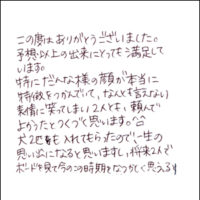 この度はありがとうございました。
予想以上の出来にとっても満足して
います。
特にだんな様の顔が本当に
特徴をつかんでいて、なんとも言えない
表情に笑ってしまい2人とも、頼んで
よかったとつくづく思います。
犬2匹も入れてもらったので、一生の
思い出になると思いますし、将来2人で
ボードを見て今のこの時期をなつかしく思える